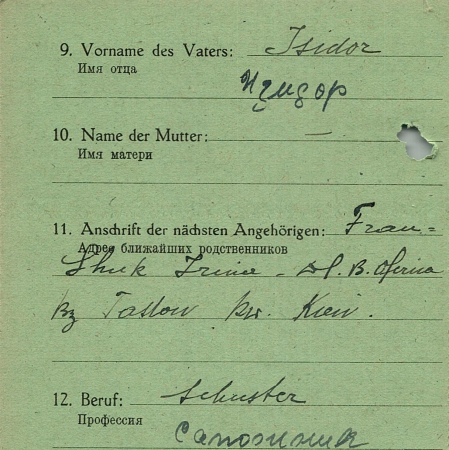 9. Vorname des Vaters: Isidor
Имя отца
Изидор
10. Name der Mutter: —
Имя матери
11. Anschrift der nächsten Angehörigen: Frau-
Адрес ближайших родственников
Irina
Bz Taslow Kr. Kiew.
12. Beruf: Schuster
Профессия
Сапожник